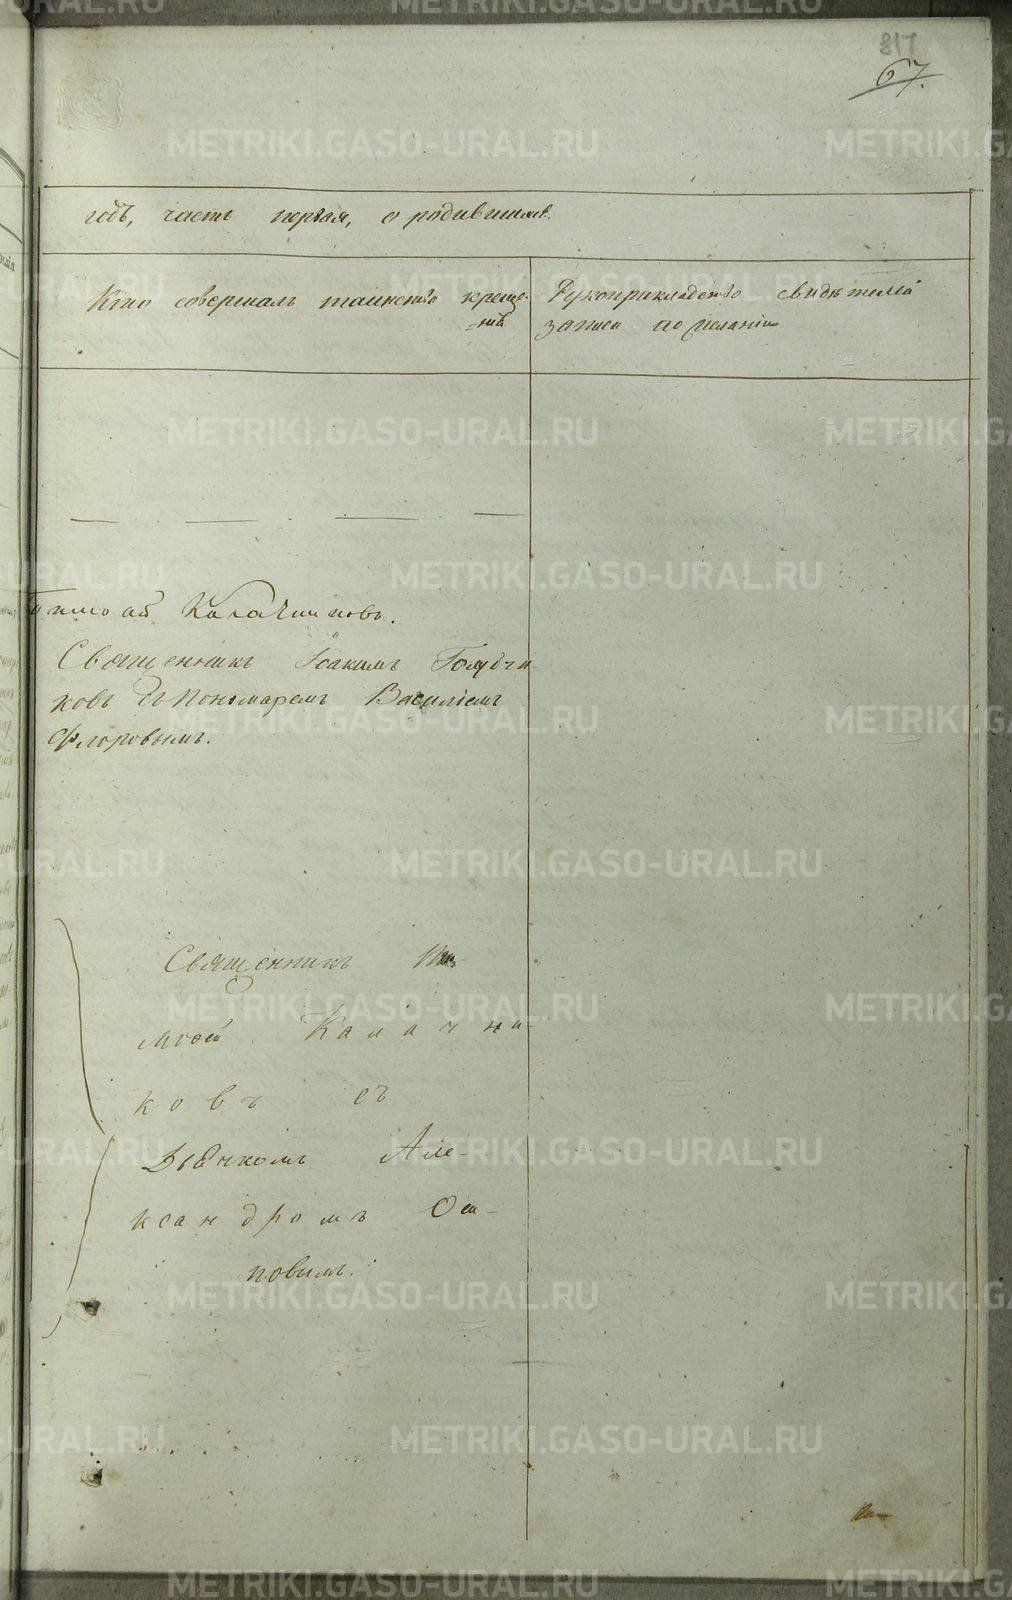 817
67.
годъ, часть первая, о родившихся.
Кто совершалъ таинство креще-
нія
Рукоприкладство свидѣтелей
записи по желанію
Тимоѳей Калачниковъ.
Священникъ Іоакимъ Голубчи
ковъ съ Пономаремъ Василіемъ
Флоровымъ.
Священникъ Ти-
моѳей Калачни-
ковъ съ
Дьячкомъ Але-
ксандромъ Оси-
повымъ.
METRIKI.GASO-URAL.RU